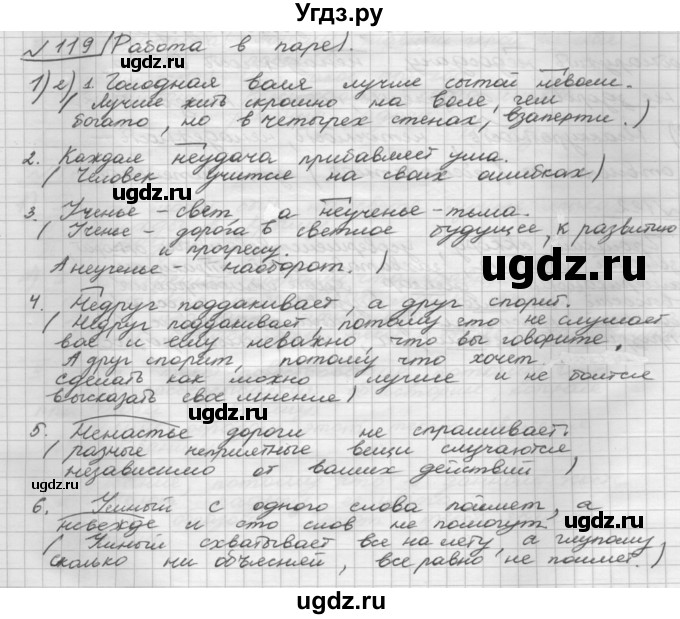 Угдз.ру
№ 119 (Работа в паре).
1) 2) 1. Голодная воля лучше сытой неволи.
( Лучше жить скромно на воле, чем
богато, но в четырех стенах, взаперти. )
2. Каждая неудача прибавляет ума.
( Человек учится на своих ошибках )
3. Ученье – свет, а неученье – тьма.
( Ученье – дорога в светлое будущее, к развитию
и прогрессу.
А неученье – наоборот. )
4. Недруг поддакивает, а друг спорит.
( Недруг поддакивает, потому что не слушает
вас и ему неважно, что вы говорите.
А друг спорит, потому что хочет
сделать как можно лучше и не боится
высказать свое мнение )
5. Ненастье дороги не спрашивает.
( разные неприятные вещи случаются
независимо от ваших действий )
6. Умный с одного слова поймет, а
невежде и сто слов не помогут.
( Умный схватывает все на лету, а глупому,
сколько ни объясняй, все равно не поймет. )
ugdz.ru
ugdz.ru
ugdz.ru
ugdz.ru
ugdz.ru
ugdz.ru
ugdz.ru
ugdz.ru
ugdz.ru